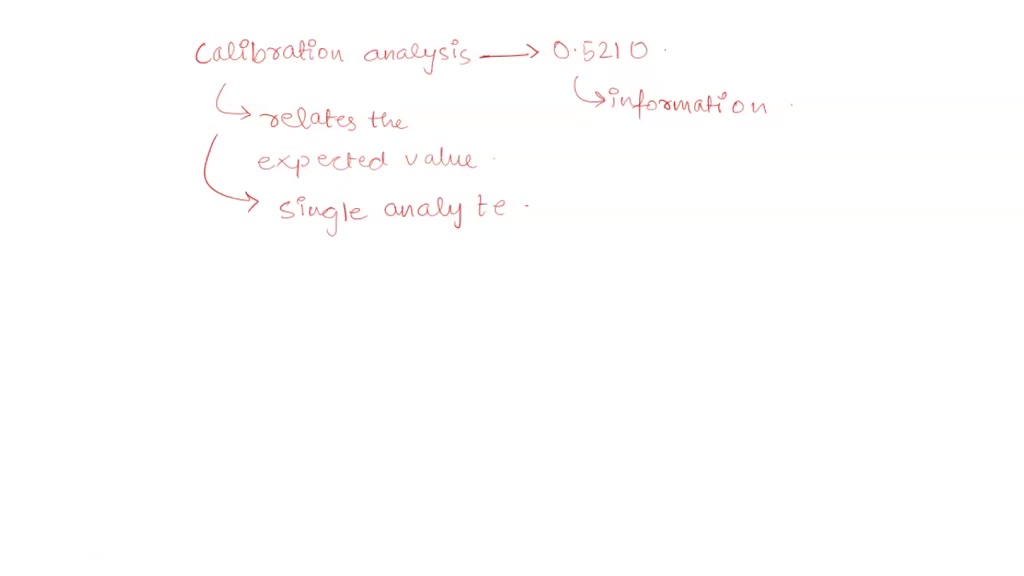 Calibration analysis → 0.5210.
↳ information.
↳ relates the
expected value.
→ single analyte.